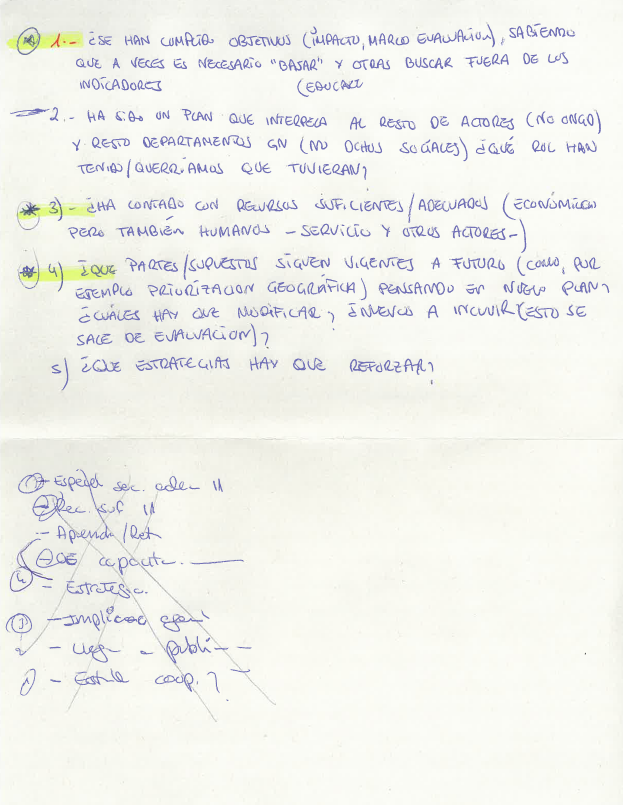 * 1.- ¿SE HAN CUMPLIDO OBJETIVOS (IMPACTO, MARCO EVALUACION), SABIENDO
QUE A VECES ES NECESARIO "BASAR" Y OTRAS BUSCAR FUERA DE LOS
INDICADORES (EDUCARE
2.- HA SIDO UN PLAN QUE INTERPELA AL RESTO DE ACTORES (NO ONGD)
Y RESTO DEPARTAMENTOS GN (NO DCHOS SOCIALES) ¿QUÉ ROL HAN
TENIDO/QUERRÍAMOS QUE TUVIERAN?
* 3) - ¿HA CONTADO CON RECURSOS SUFICIENTES/ADECUADOS (ECONÓMICO
PERO TAMBIÉN HUMANOS - SERVICIO Y OTROS ACTORES-)
* 4) ¿QUE PARTES/SUPUESTOS SIGUEN VIGENTES A FUTURO (COMO, POR
EJEMPLO PRIORIZACION GEOGRÁFICA) PENSANDO EN NUEVO PLAN?
¿CUÁLES HAY QUE MODIFICAR? ¿NUEVOS A INCLUIR (ESTO SE
SACE DE EVALUACION)?
5) ¿QUE ESTRATEGIAS HAY QUE REFORZAR?
sec.
- Rec. suf
- Aprend/Ret
QUE
4 - Estrategia.
3 - Implicac
2 - - publi - -
1 - coop. ?